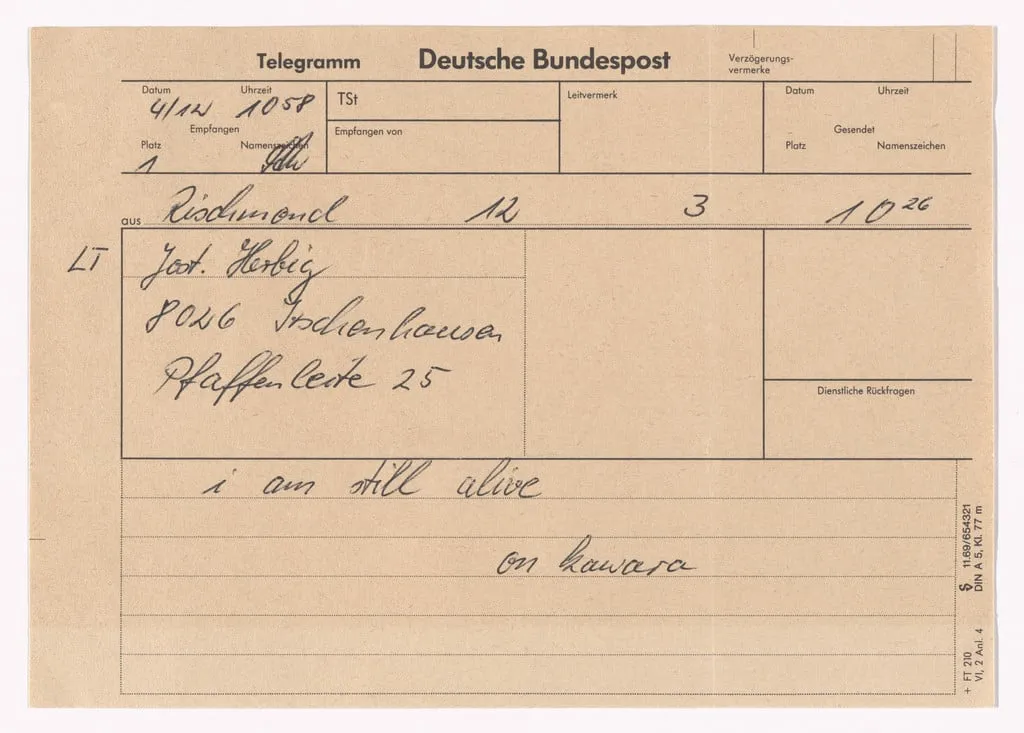 Telegramm Deutsche Bundespost Verzögerungs-
vermerke
Datum Uhrzeit TSt Leitvermerk Datum Uhrzeit
4/12 1058
Empfangen Empfangen von Gesendet
Platz Namenszeichen Platz Namenszeichen
1
aus Rischmond 12 3 10 26
LT Jost. Herbig
8026 Irschenhausen
Pfaffenleite 25
Dienstliche Rückfragen
i am still alive
on kawara
11.69/654321
DIN A 5, Kl. 77 m
+ FT 210
VI, 2 Anl. 4